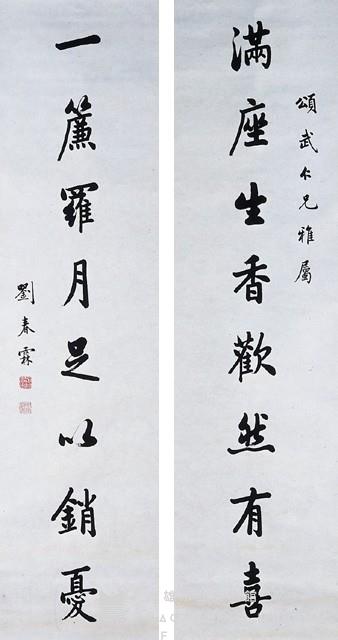 頌武仁兄雅屬
滿座生香歡然有喜
一簾羅月足以銷憂
劉春霖